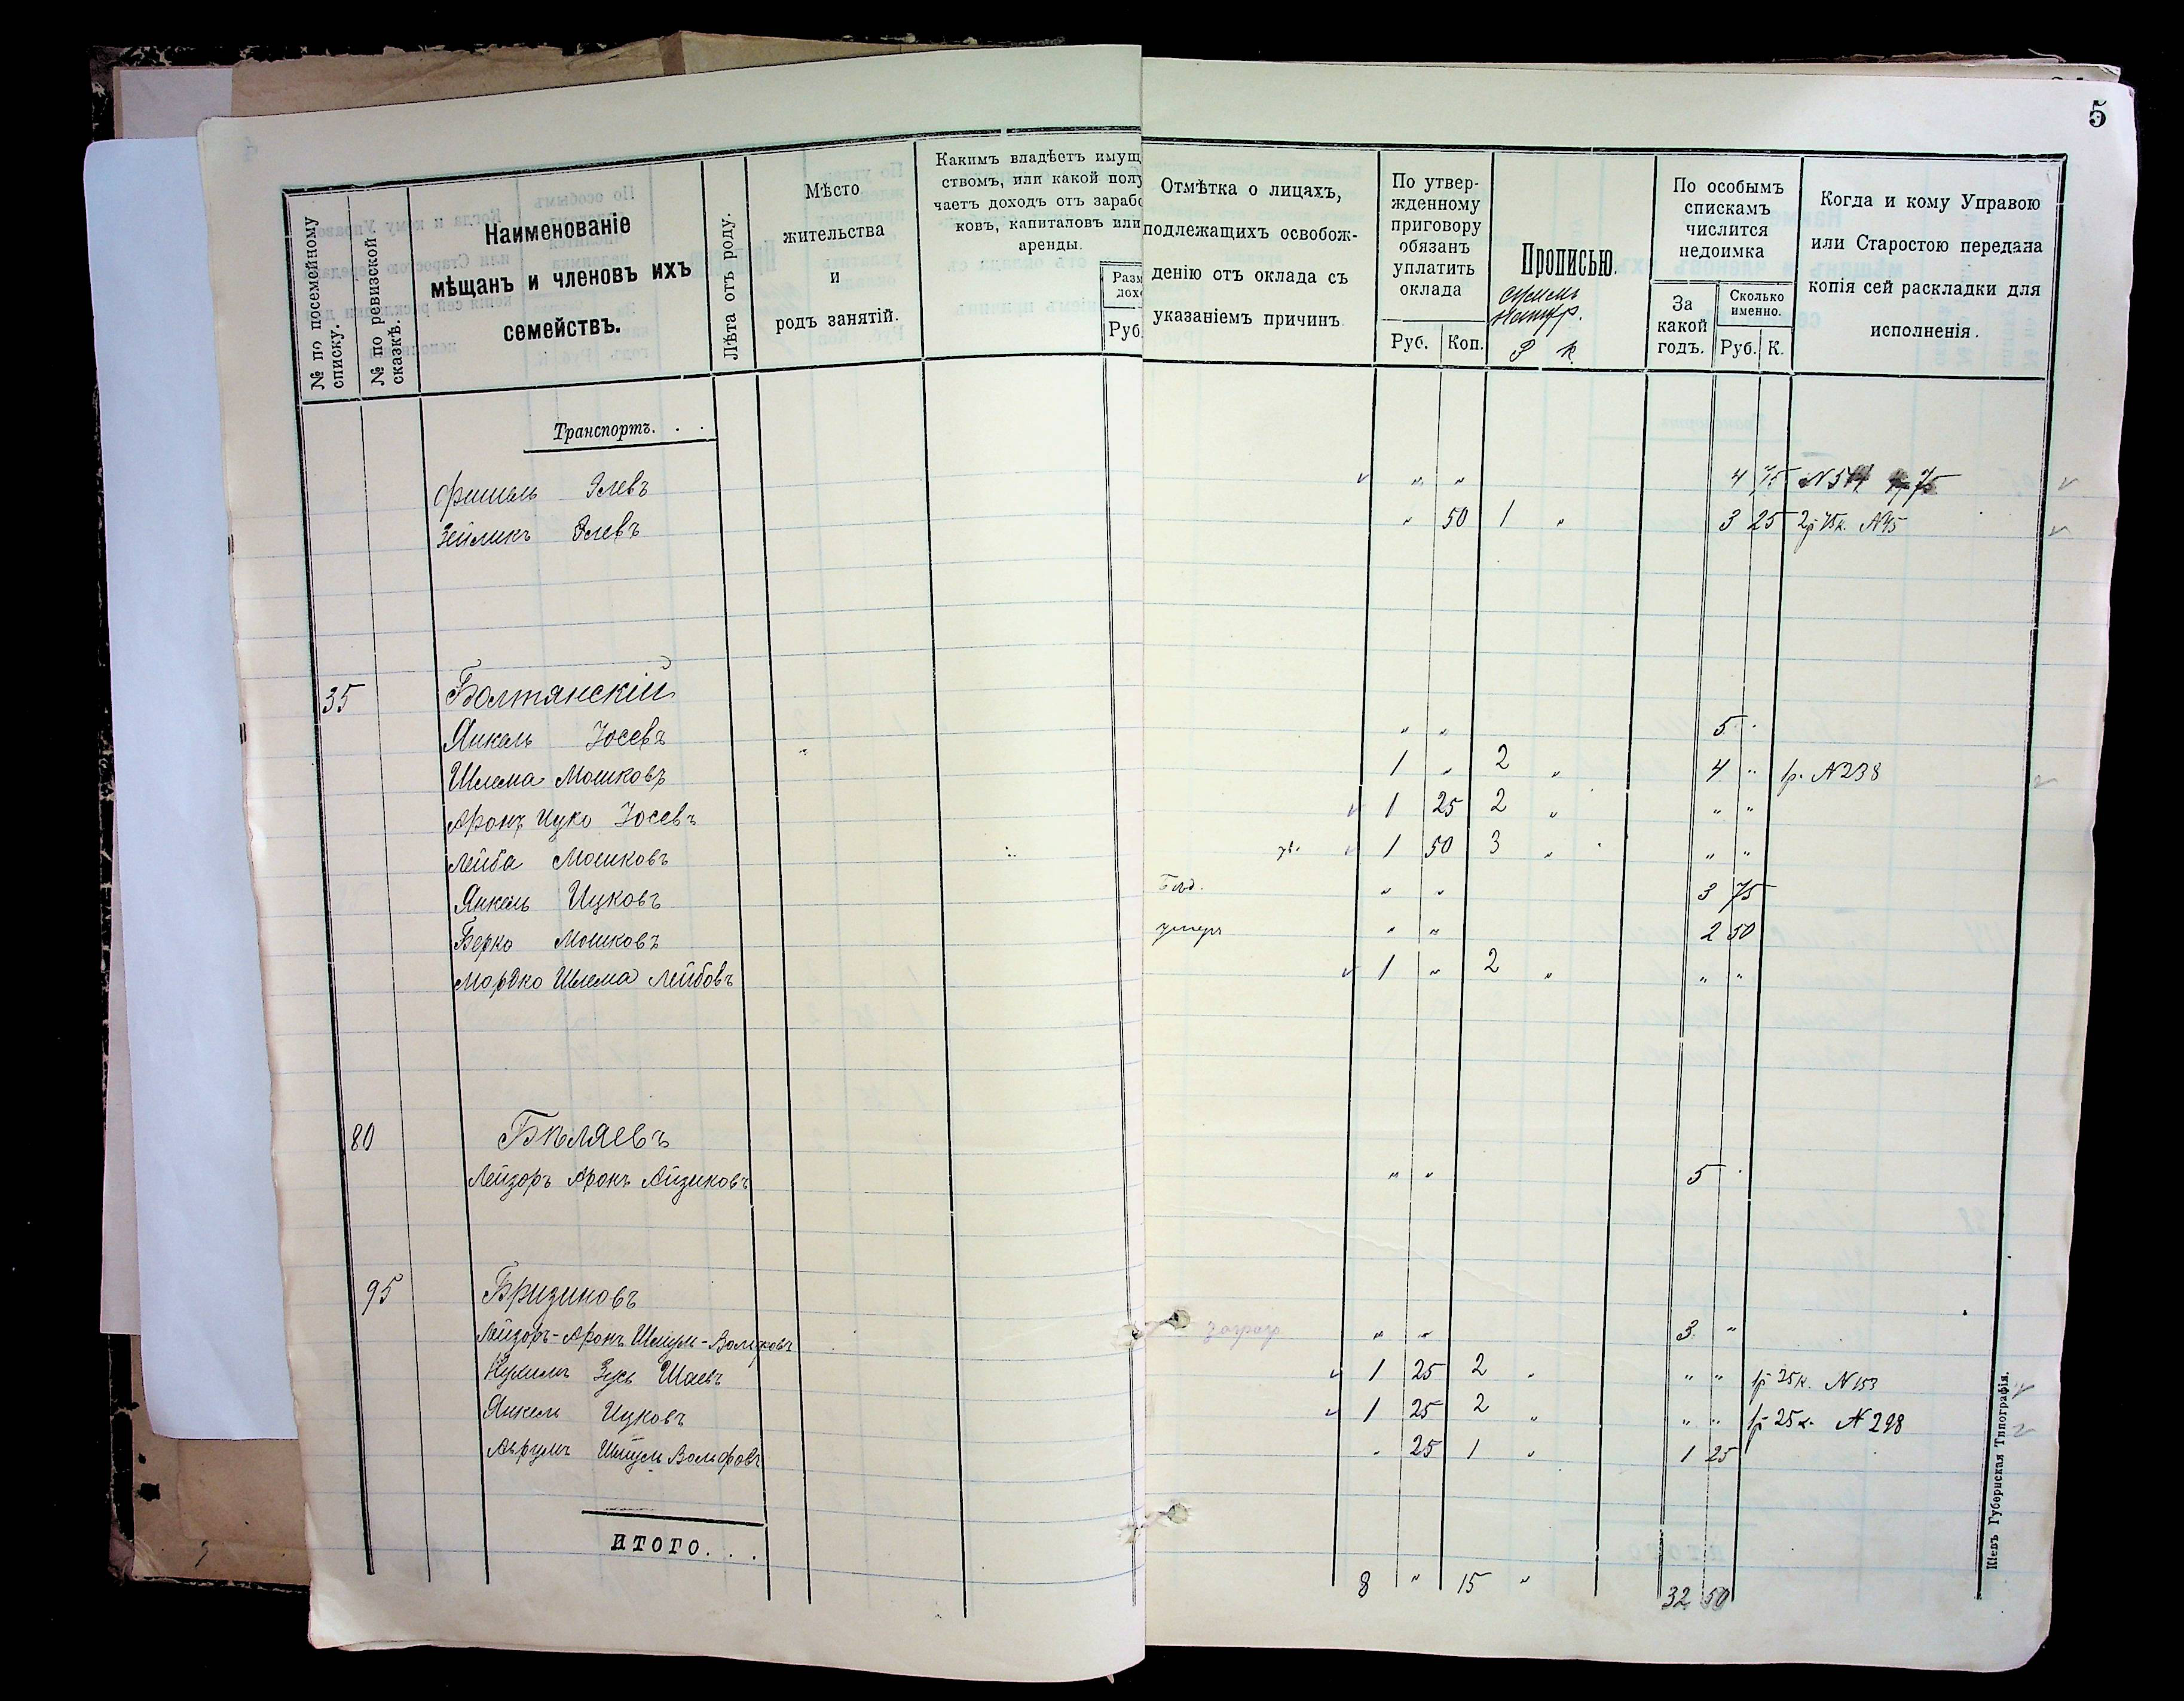 5
№ по посемейному списку.
№ по ревизской сказкѣ.
Наименованіе
мѣщанъ и членовъ ихъ
семействъ.
Лѣта отъ роду.
Мѣсто
жительства
и
родъ занятій.
Какимъ владѣетъ имущ
ствомъ, или какой полу
чаетъ доходъ отъ зарабо
ковъ, капиталовъ или
аренды.
Разм
дохо
Руб.
Отмѣтка о лицахъ,
подлежащихъ освобож-
денію отъ оклада съ
указаніемъ причинъ
По утвер-
жденному
приговору
обязанъ
уплатить
оклада
Руб. Коп.
Прописью.
Р К.
По особымъ
спискамъ
числится
недоимка
За
какой
годъ.
Сколько
именно.
Руб. К.
Когда и кому Управою
или Старостою передана
копія сей раскладки для
исполненія.
Транспортъ. . .
Фишель Элевъ " " 4 75
Зейликъ Элевъ " 50 1 " 3 25 2р 75к. N45
35 Болтянскій
Янкель Іосевъ " " 5 "
Шлема Мошковъ 1 " 2 " 4 " 1р. N238
Аронъ Ицко Іосевъ 1 25 2 " " "
Лейба Мошковъ 1 50 3 " " "
Янкель Ицковъ " " 3 75
Берко Мошковъ умеръ " " 2 50
Мордко Шлема Лейбовъ 1 " 2 " " "
80 Бѣляевъ
Лейзоръ Аронъ Айзиковъ " " 5 "
95 Бризиновъ
Лейзоръ-Аронъ Шмуль-Вольфовъ " " 3 "
Зусь Шаевъ 1 25 2 " " " 1р 25к. N153
Янкель Ицковъ 1 25 2 " " " 1р 25к. N298
Аврумъ Шмуль Вольфовъ " 25 1 " 1 25
ИТОГО. . .
8 " 15 " 32 50
Кіевъ Губернская Типографія.